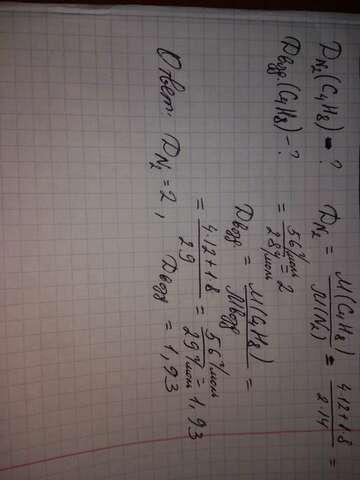 D_N₂(C₄H₈) - ?
D_возд.(C₄H₈) - ?
D_N₂ = M(C₄H₈)/M(N₂) = (4·12+1·8)/(2·14) =
= 56 г/моль / 28 г/моль = 2
D_возд = M(C₄H₈)/M_возд =
= (4·12+1·8)/29 = 56 г/моль / 29 г/моль = 1,93
Ответ: D_N₂ = 2, D_возд = 1,93